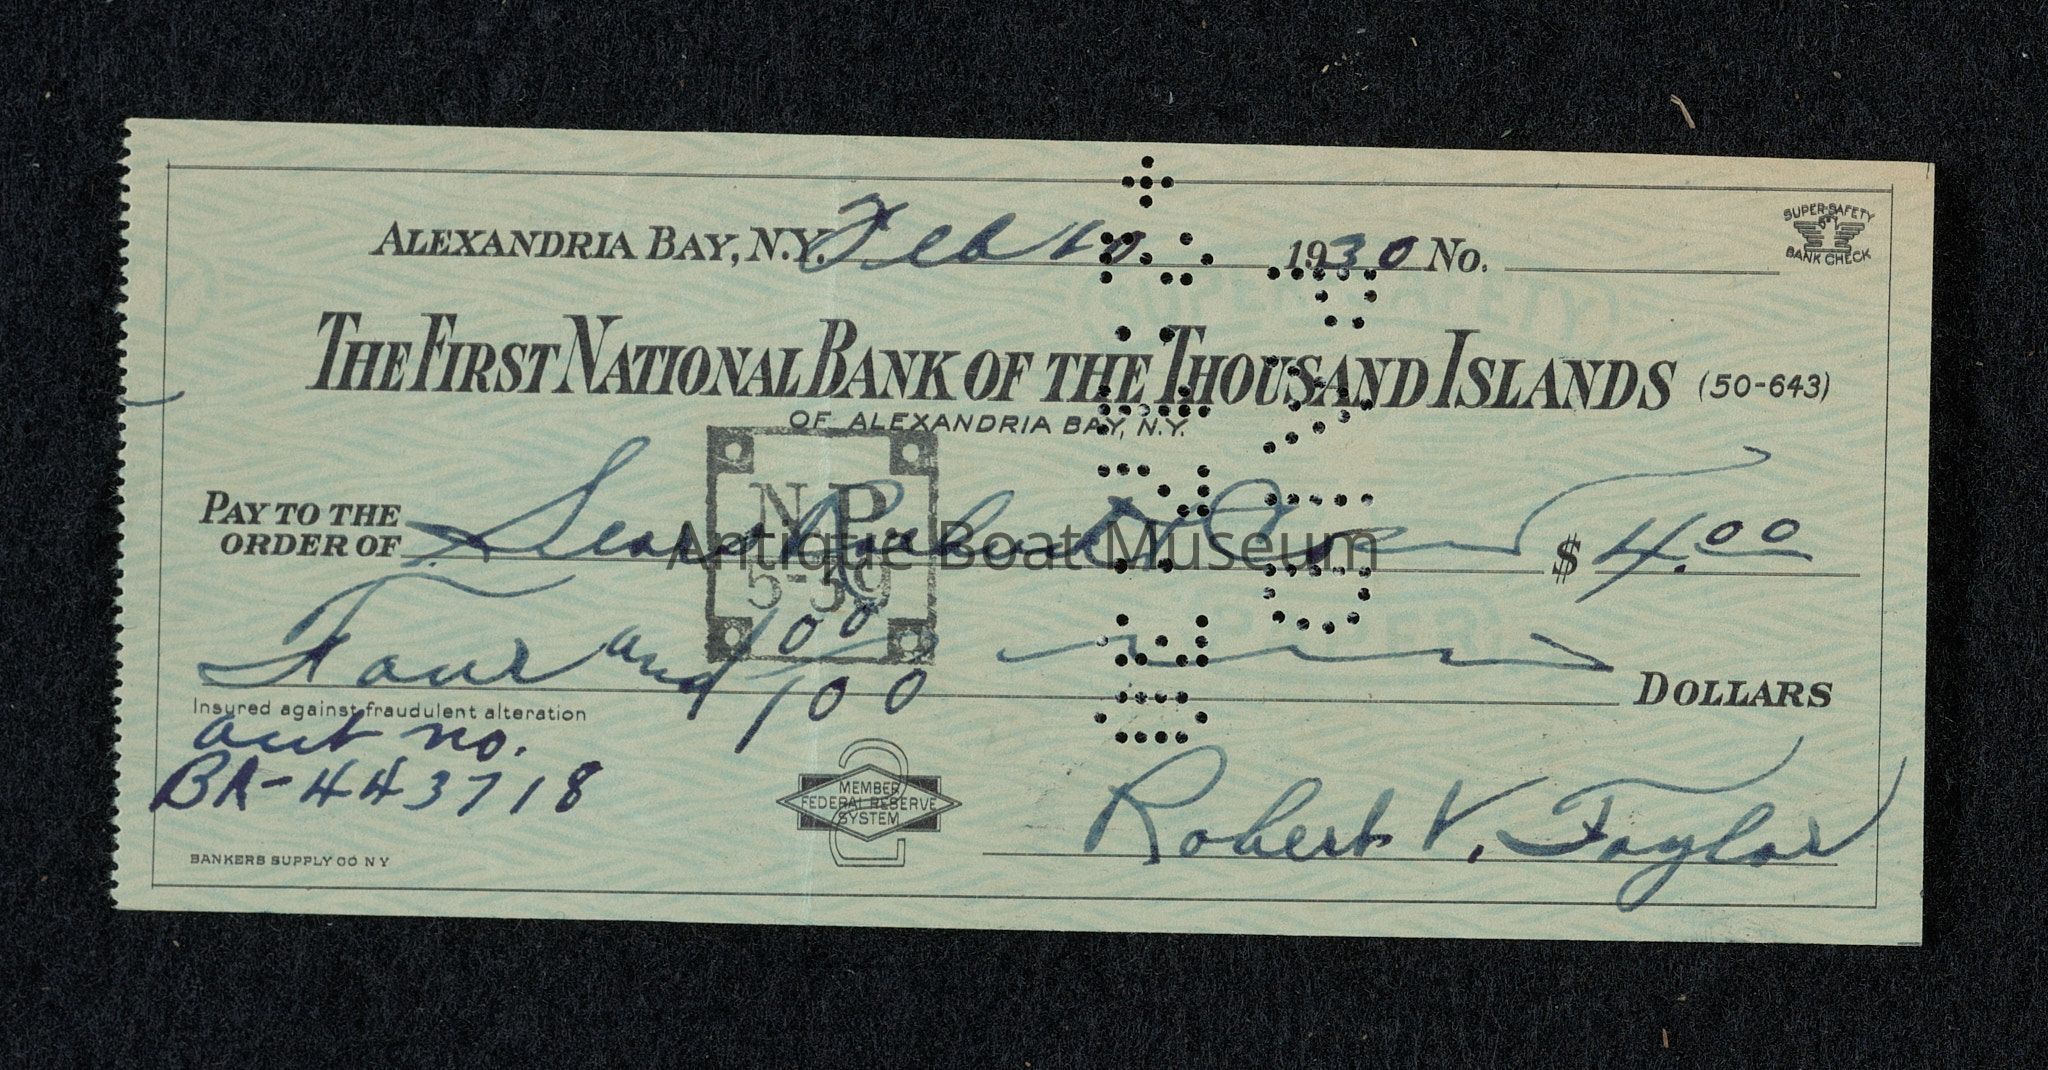 ALEXANDRIA BAY, N.Y. Feb 10 1930 No.
SUPER-SAFETY
BANK CHECK
THE FIRST NATIONAL BANK OF THE THOUSAND ISLANDS (50-643)
OF ALEXANDRIA BAY, N.Y.
PAY TO THE
ORDER OF Sears Roebuck & Co $ 4.00
N P
5-39
Antique Boat Museum
Four and 00/100 DOLLARS
Insured against fraudulent alteration
acct no.
BA-443718
MEMBER
FEDERAL RESERVE
SYSTEM
Robert V. Taylor
BANKERS SUPPLY CO N Y